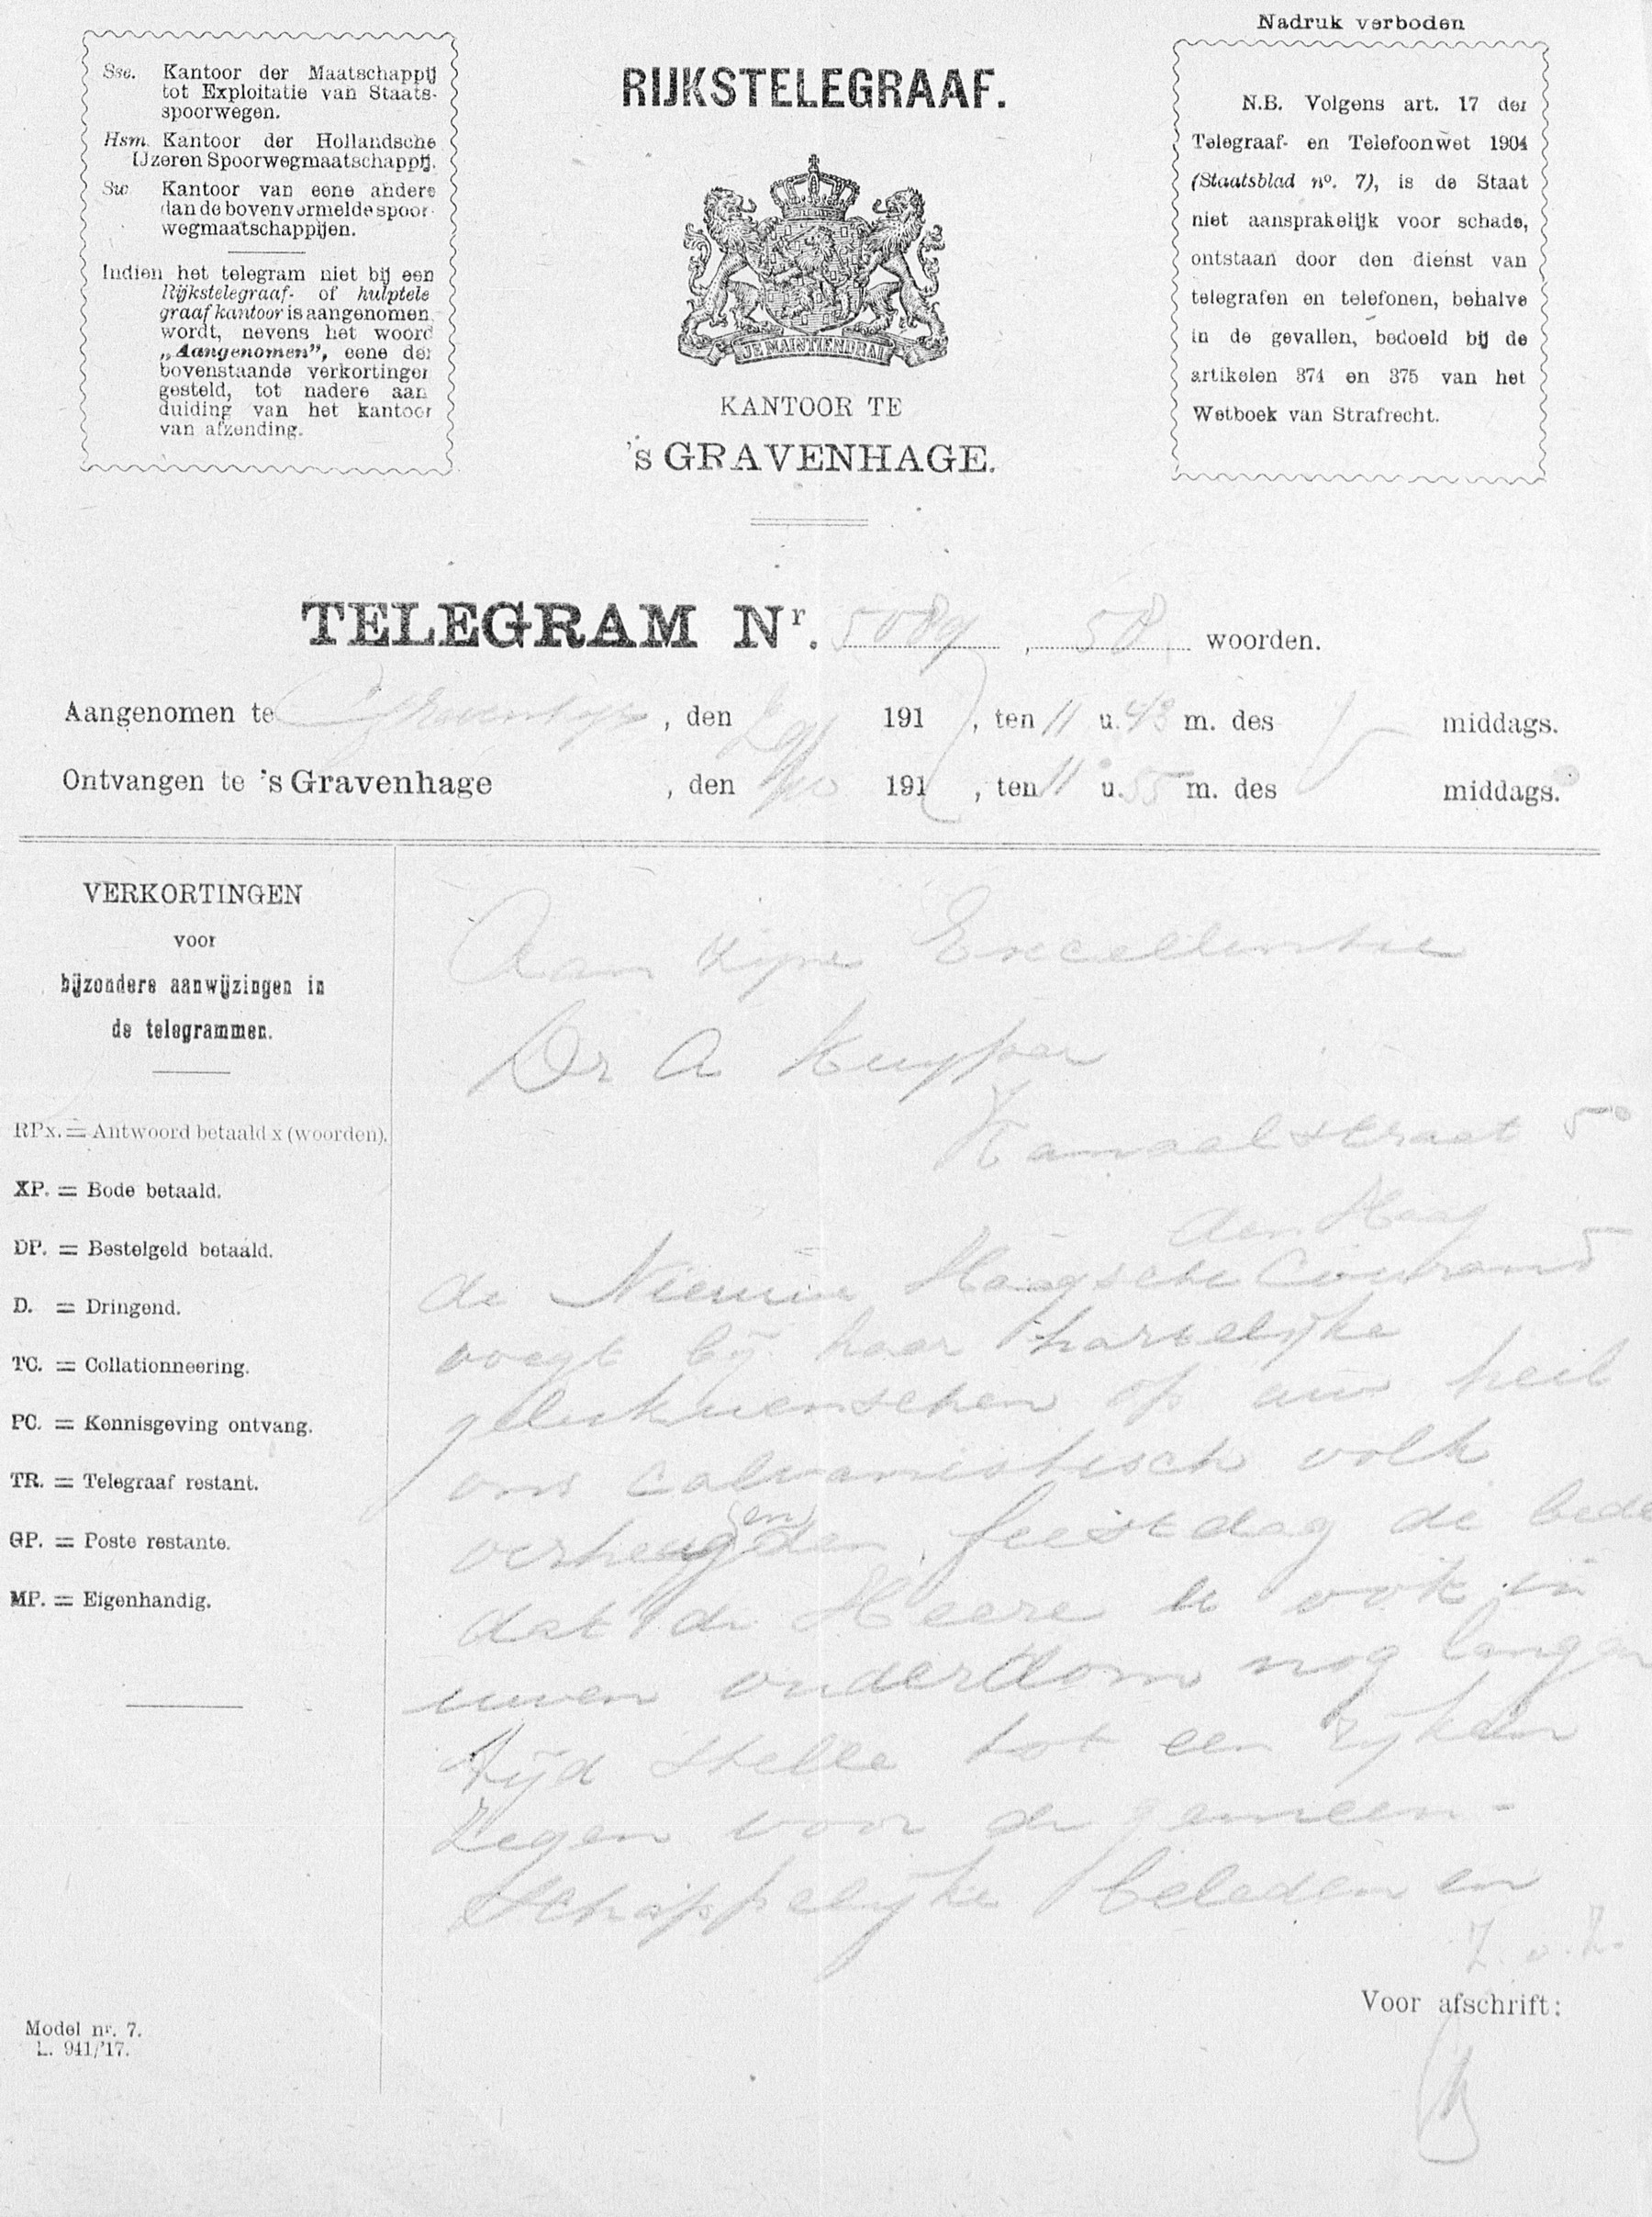 Nadruk verboden
Sse. Kantoor der Maatschappij
tot Exploitatie van Staats-
spoorwegen.
Hsm. Kantoor der Hollandsche
IJzeren Spoorwegmaatschappij.
Sw. Kantoor van eene andere
dan de bovenvermelde spoor-
wegmaatschappijen.
Indien het telegram niet bij een
Rijkstelegraaf- of hulptele
graafkantoor is aangenomen
wordt, nevens het woord
„Aangenomen”, eene der
bovenstaande verkortingen
gesteld, tot nadere aan
duiding van het kantoor
van afzending.
RIJKSTELEGRAAF.
JE MAINTIENDRAI
KANTOOR TE
's GRAVENHAGE.
N.B. Volgens art. 17 der
Telegraaf- en Telefoonwet 1904
(Staatsblad no. 7), is de Staat
niet aansprakelijk voor schade,
ontstaan door den dienst van
telegrafen en telefonen, behalve
in de gevallen, bedoeld bij de
artikelen 374 en 375 van het
Wetboek van Strafrecht.
TELEGRAM Nr. 5089, 58 woorden.
Aangenomen te Gravenhage, den 29/ 1917, ten 11 u. 43 m. des V middags.
Ontvangen te 's Gravenhage, den /10 191, ten 11 u. 55 m. des middags.
VERKORTINGEN
voor
bijzondere aanwijzingen in
de telegrammen.
RPx. = Antwoord betaald x (woorden).
XP. = Bode betaald.
DP. = Bestelgeld betaald.
D. = Dringend.
TC. = Collationneering.
PC. = Kennisgeving ontvang.
TR. = Telegraaf restant.
GP. = Poste restante.
MP. = Eigenhandig.
Model nr. 7.
L. 941/'17.
Aan zijne Excellentie
Dr A Kuyper
Kanaalstraat 5
den Haag
de Nieuwe Haagsche Courand
voegt bij haar hartelijke
gelukwenschen op uw heil
ons calvanistisch volk
verheugden feestdag de bede
dat de Heere u ook in
uwen ouderdom nog langen
tijd stelle tot een rijken
zegen voor de gemeen-
schappelijke beleden en
Z.o.Z.
Voor afschrift: